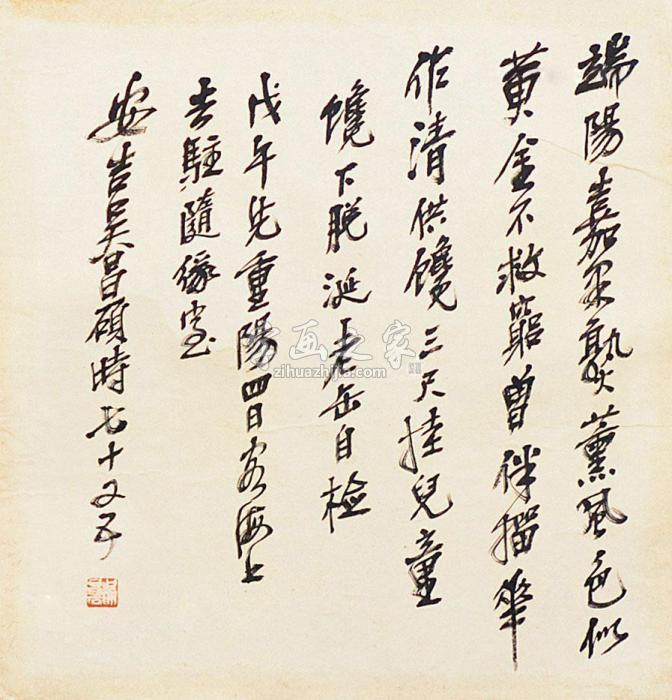 端陽嘉果熟薰風色似
黃金不救窮曾伴榴華
作清供饞三尺挂兒童
饞下脫涎老缶自檢
戊午先重陽四日客海上
去駐隨緣室
安吉吳昌碩時七十又五
字画之家
zihuazhijia.com